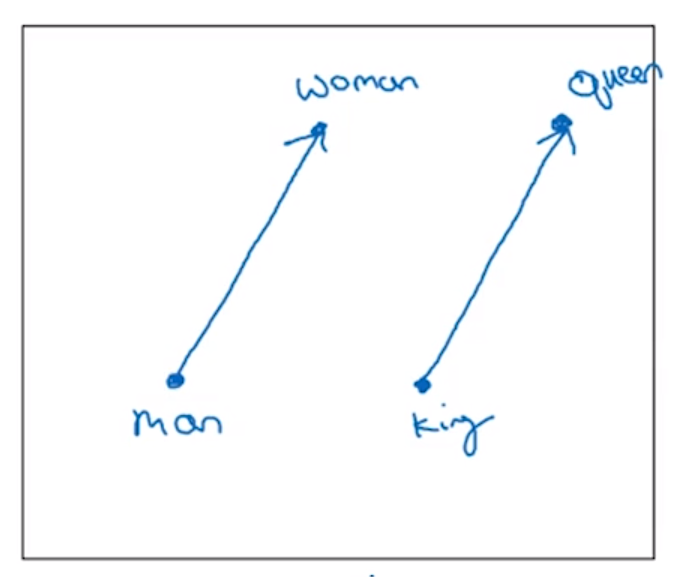 woman
Queen
man
king